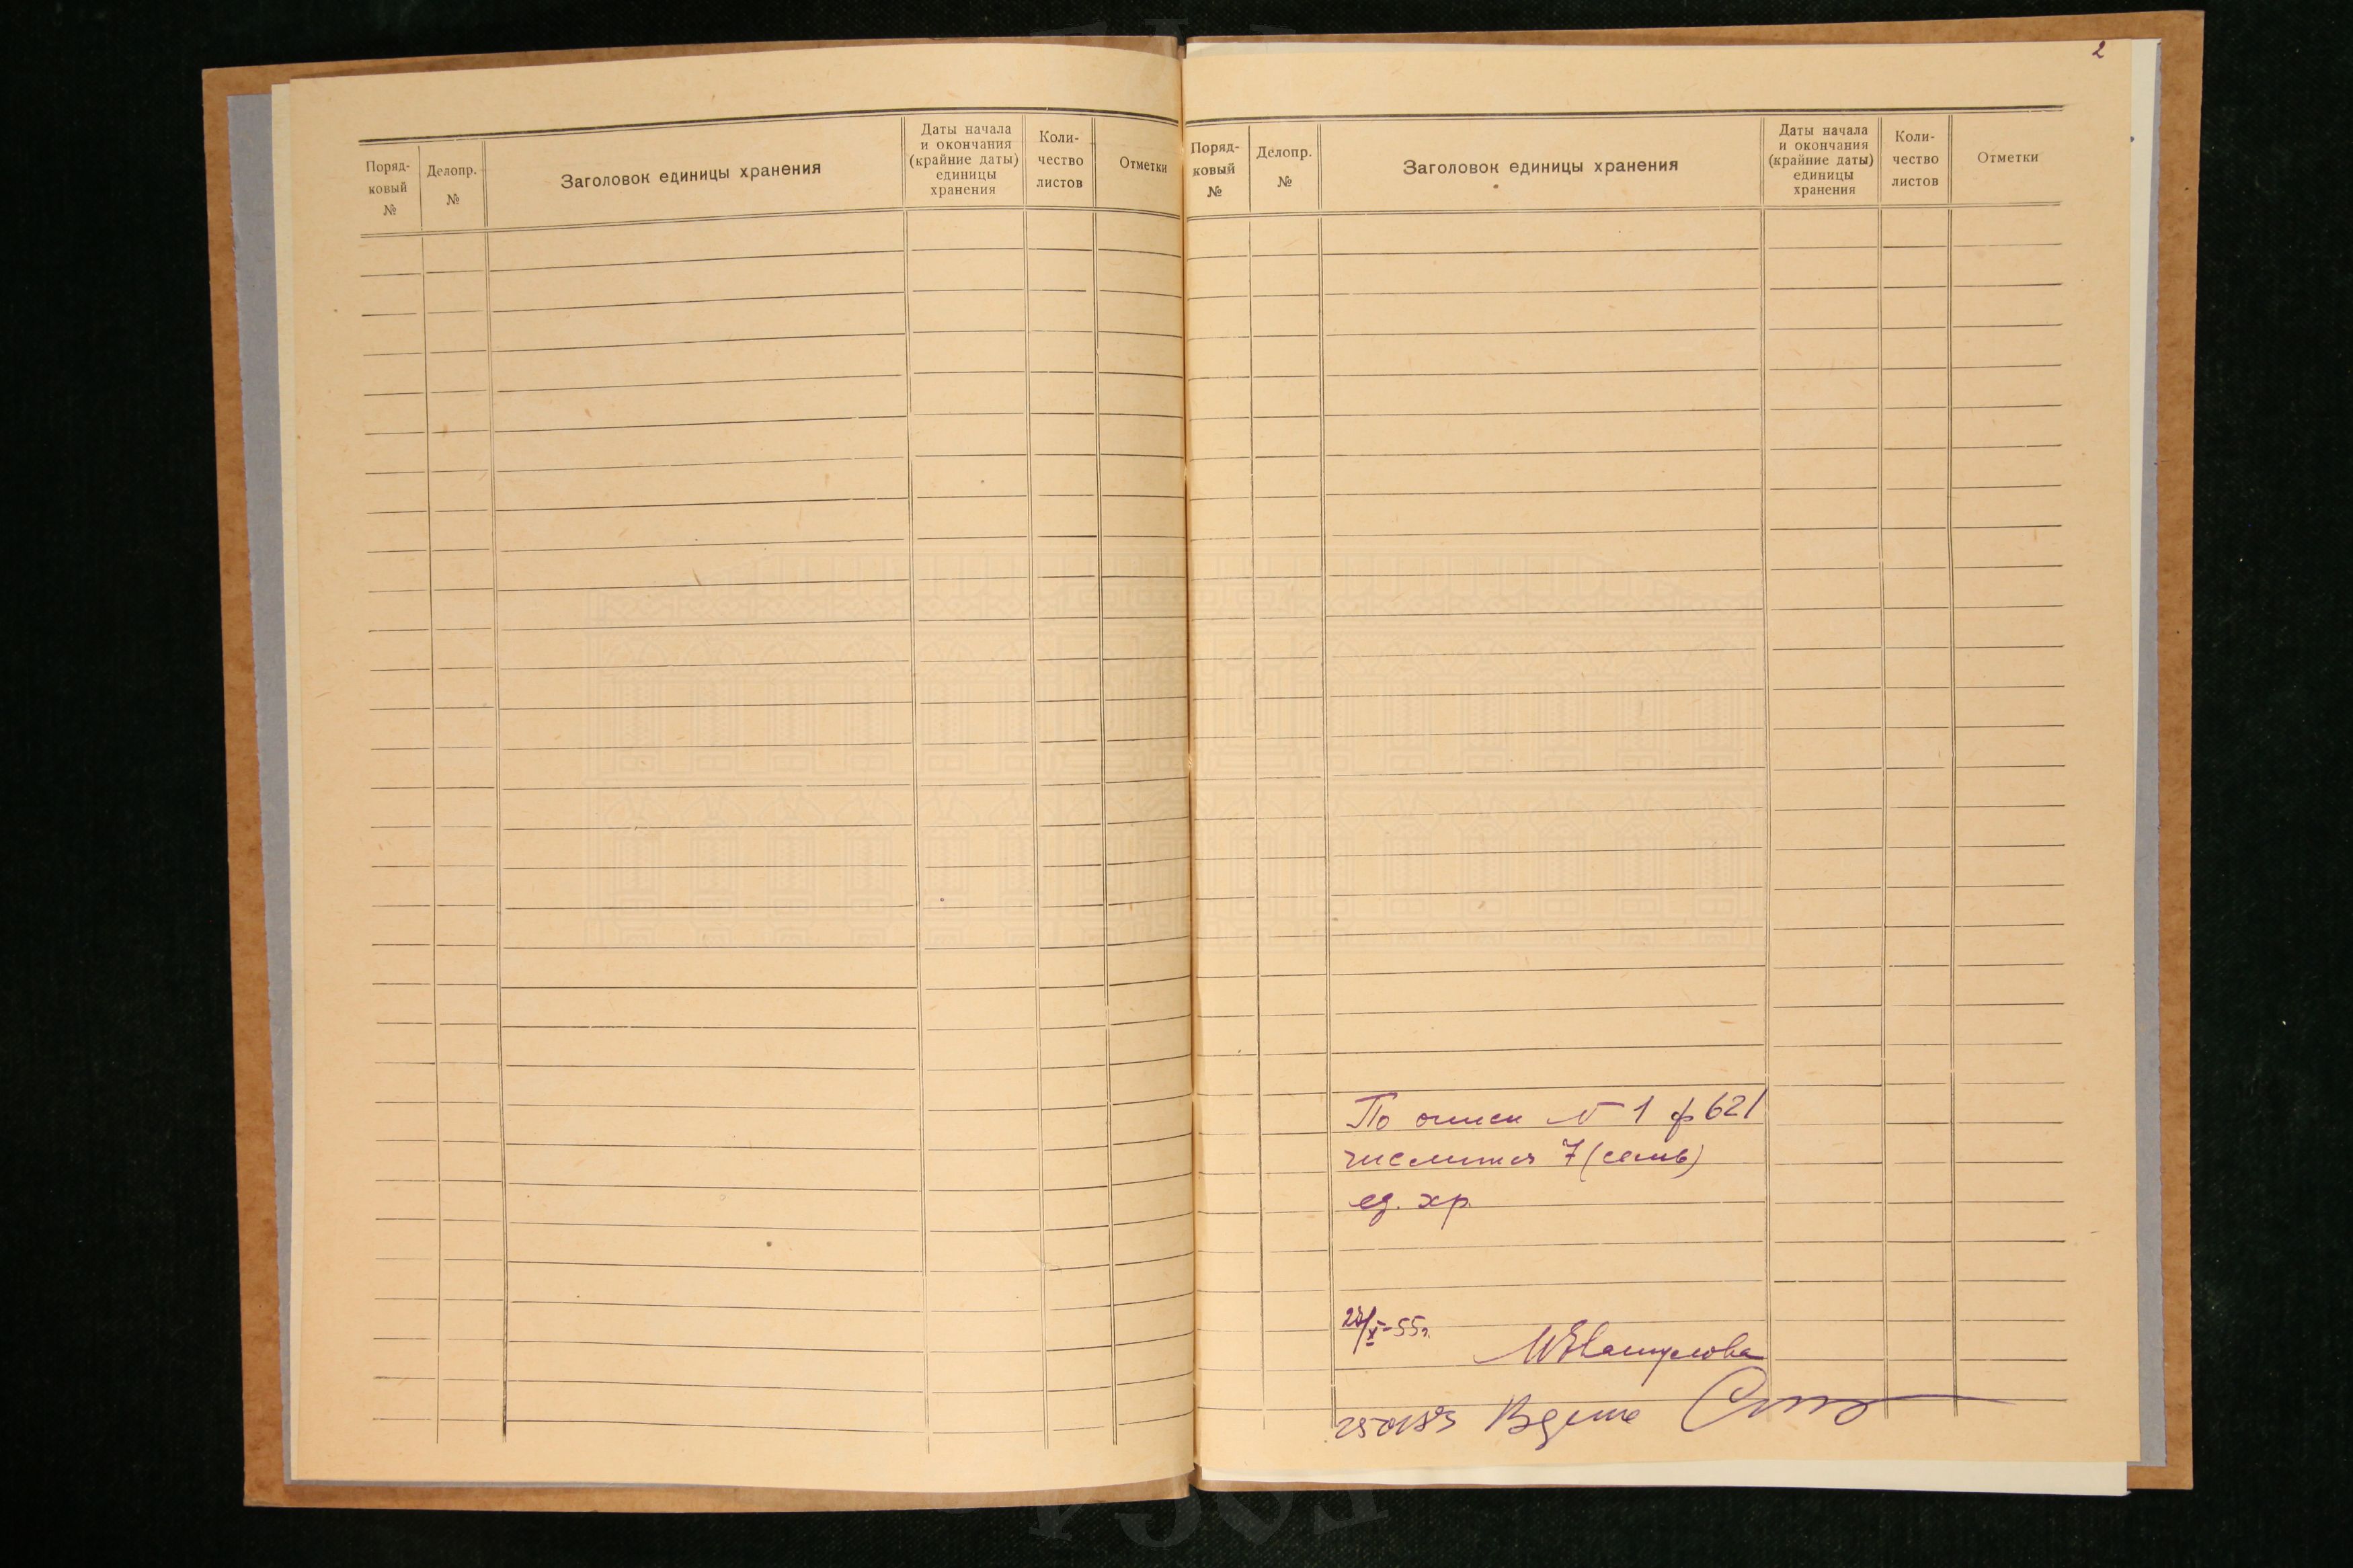 Поряд-
ковый
№
Делопр.
№
Заголовок единицы хранения
Даты начала
и окончания
(крайние даты)
единицы
хранения
Коли-
чество
листов
Отметки
2
Поряд-
ковый
№
Делопр.
№
Заголовок единицы хранения
Даты начала
и окончания
(крайние даты)
единицы
хранения
Коли-
чество
листов
Отметки
По описи № 1 ф 621
числится 7 (семь)
ед. хр.
X-55г.